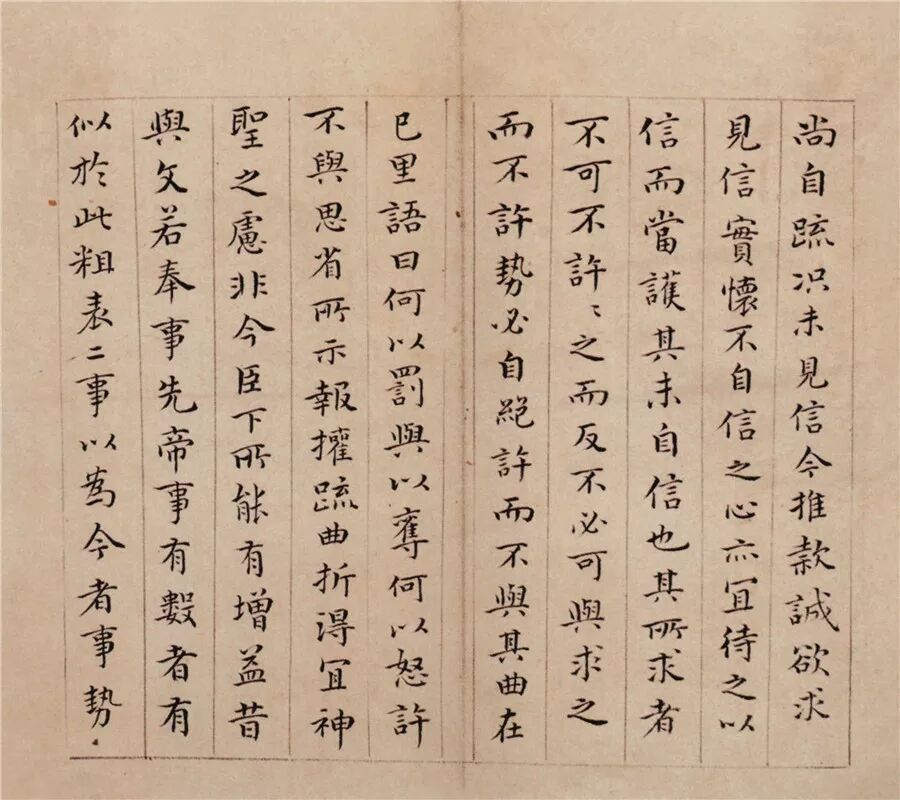 尚自疏况未見信今推款誠欲求
見信實懷不自信之心亦宜待之以
信而當護其未自信也其所求者
不可不許〻之而反不必可與求之
而不許勢必自絕許而不與其曲在
已里語曰何以罰與以奪何以怒許
不與思省所示報權疏曲折得宜神
聖之慮非今臣下所能有增益昔
與文若奉事先帝事有數者有
似於此粗表二事以為今者事勢